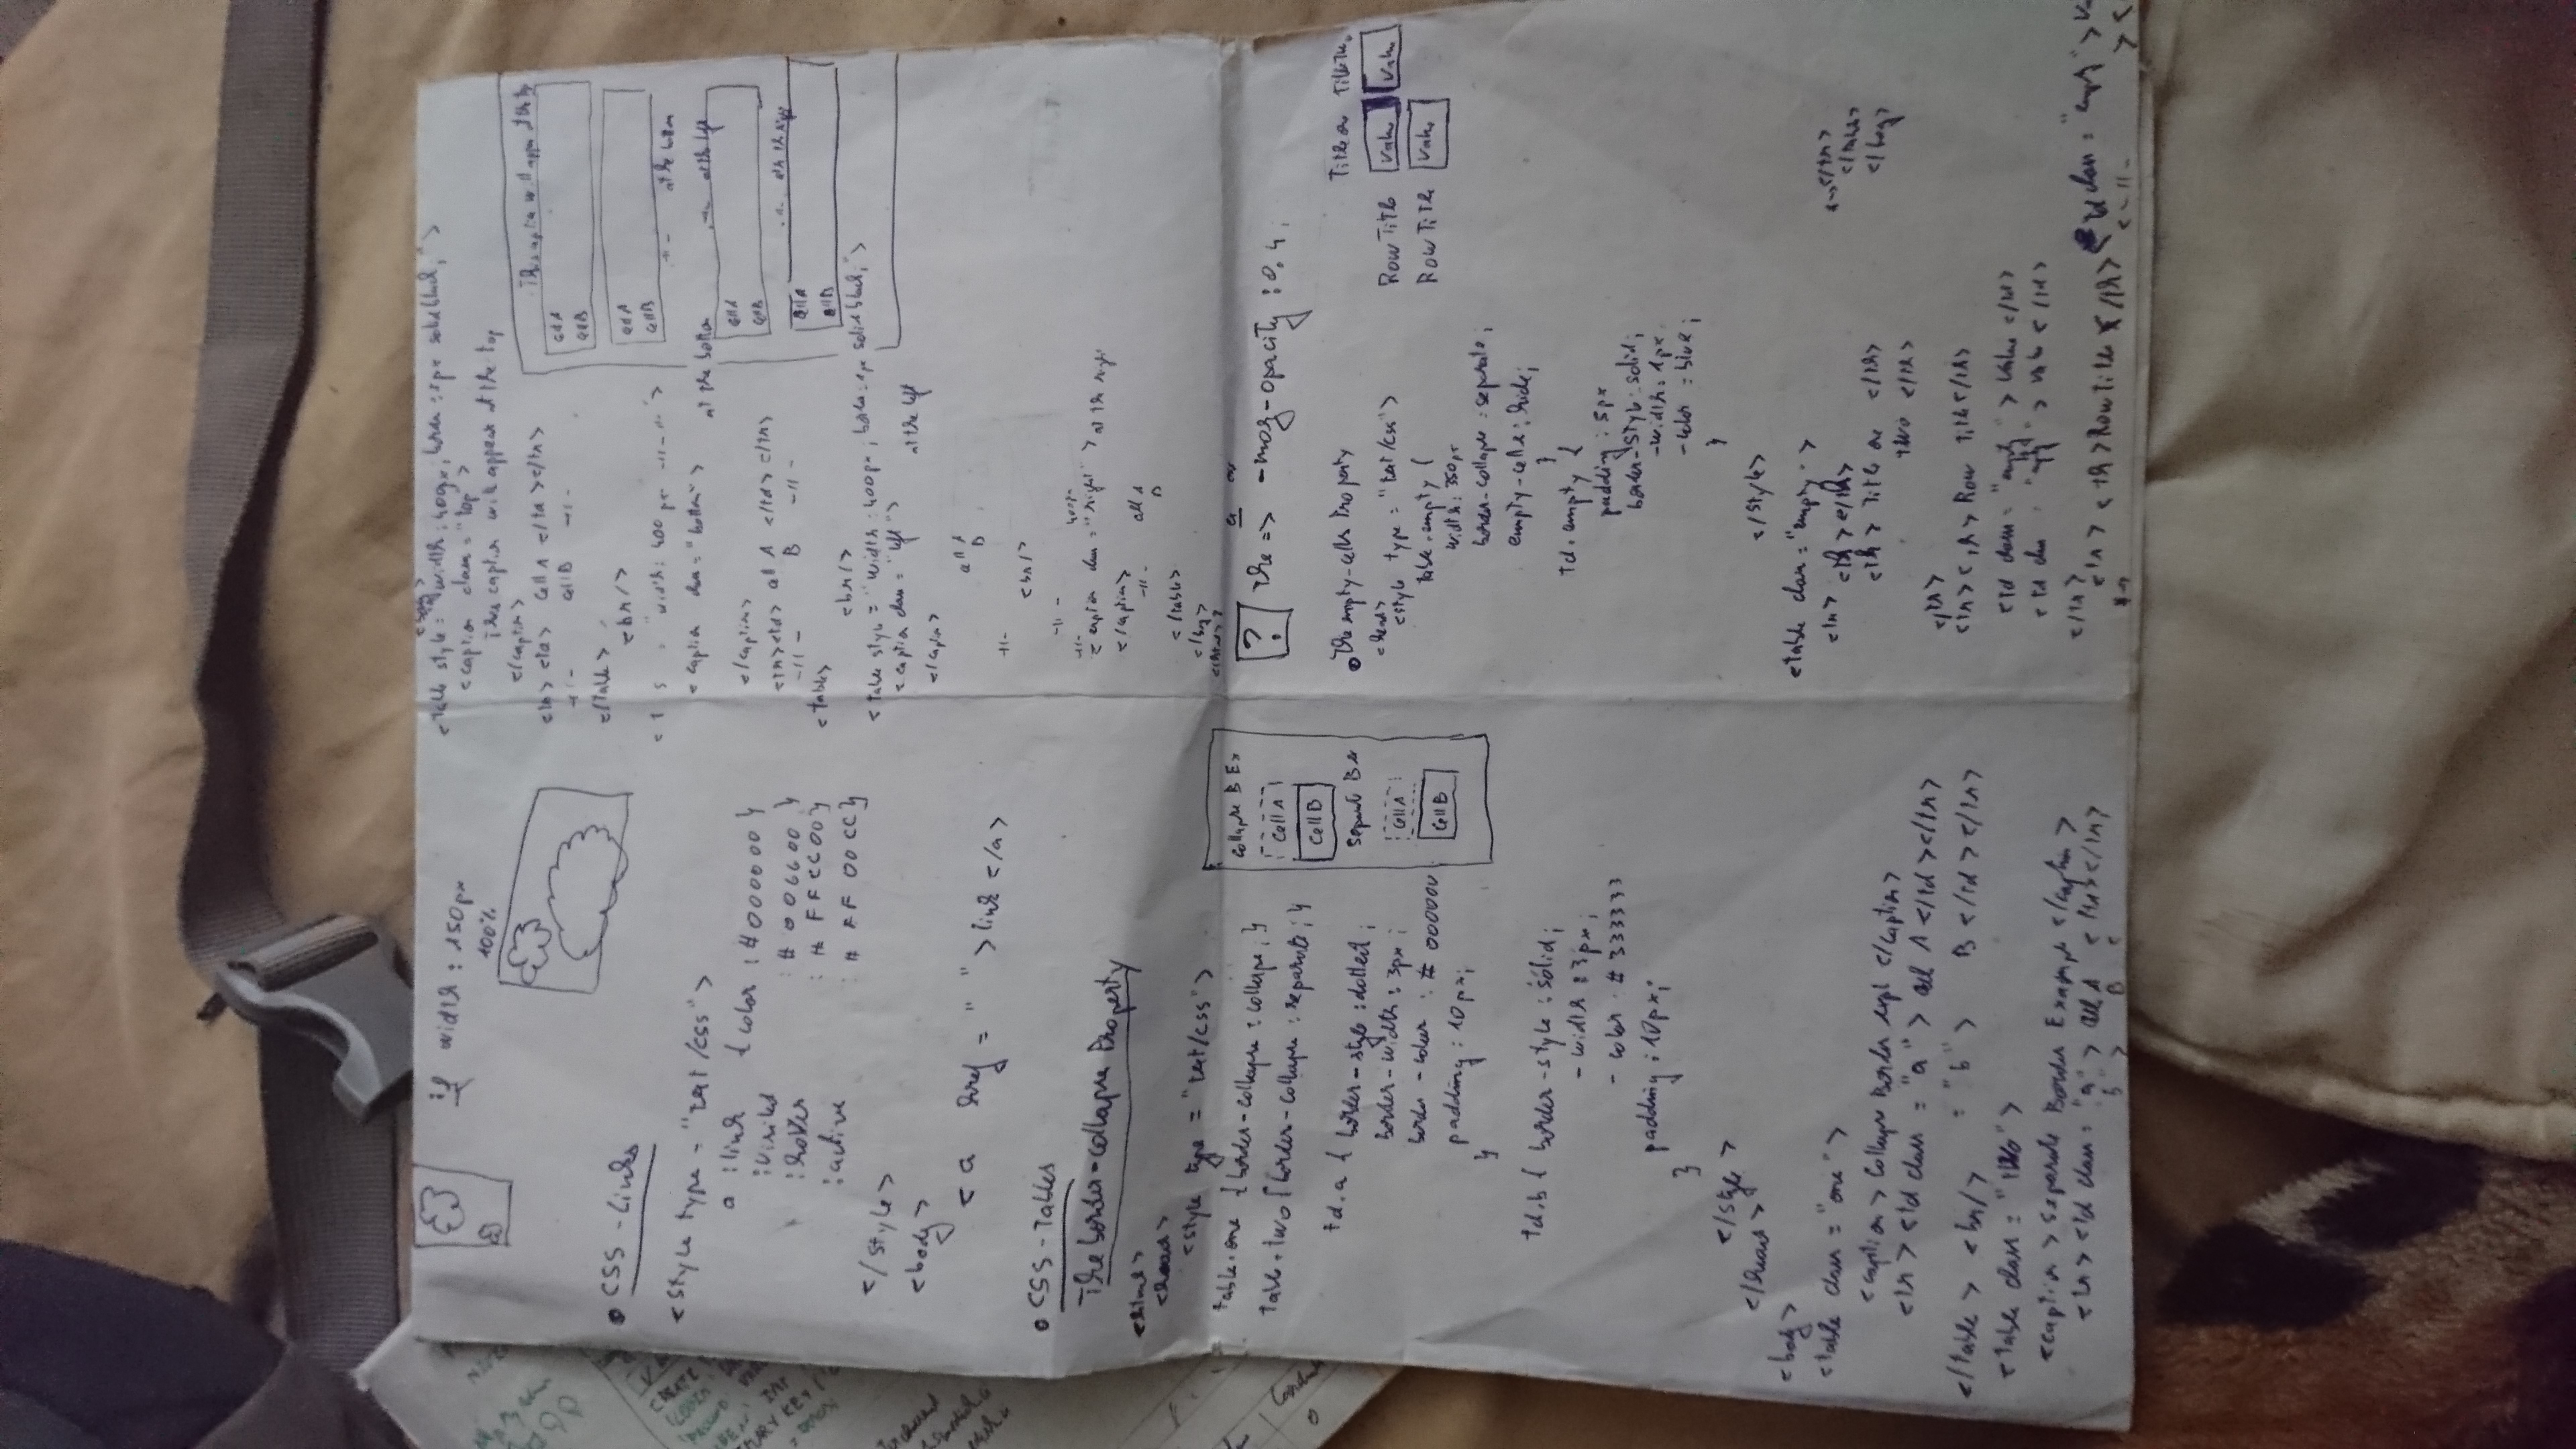 if width : 150px
100%
• CSS - Links
<style type = "text/css">
a :link { color : #000000 }
:visited : # 006600 }
:hover : # FFCC00 }
:active : # FF00CC }
</style>
<body>
<a href = " " > link </a>
• CSS - Tables
The border-collapse Property
<html>
<head>
<style type = "text/css">
table.one { border-collapse : collapse; }
table.two { border-collapse : separate; }
td.a { border-style : dotted;
border-width : 3px;
border-color : # 000000
padding : 10px;
}
td.b { border-style : solid;
- width : 3px;
- color : # 333333
padding : 10px;
}
</style>
</head>
<body>
<table class = "one">
<caption> Collapse Border expl </caption>
<tr> <td class = "a"> Cell A </td></tr>
= "b"> B </td></tr>
</table> <br/>
<table class = "two">
<caption> Separate Border Example </caption>
<tr> <td class = "a"> Cell A </tr>
b" > B <
Collapse B Ex
Cell A
Cell B
Separate B Ex
Cell A
Cell B
<body>
<table style = "width : 400px; border : 1px solid black;">
<caption class = "top">
This caption will appear at the top
</caption>
<tr> <td> Cell A </td></tr>
-11- Cell B -11-
</table>
<br/>
< t s = "width : 400px -11-11-">
<caption class = "bottom"> at the bottom
</caption>
<tr><td> Cell A </td></tr>
-11- B -11-
<table>
<br/>
<table style = "width : 400px; border : 1px solid black;">
<caption class = "left"> at the left
</caption>
Cell A
B
-11-
<br/>
-11-
400px
<caption class = "right"> at the right
</caption>
-11- Cell A
B
</table>
</body>
</html>
This caption will appear at the top
Cell A
Cell B
Cell A
Cell B
-11- at the bottom
at the left
Cell A
Cell B
at the right
Cell A
Cell B
? The => -moz-opacity : 0.4;
• The empty-cells Property
<head>
<style type = "text/css">
table.empty {
width : 350px
border-collapse : separate;
empty-cells : hide;
}
td.empty {
padding : 5px
border-style : solid;
-width : 1px
-color : blue;
}
</style>
Title one Title Two
Row Title Value Value
Row Title Value
<table class = "empty">
<tr> <th> </th>
<th> Title one </th>
two </th>
</tr>
<tr> <th> Row Title </th>
<td class = "empty"> Value </td>
<td class = "empty"> value </td>
</tr>
<tr> <th> Row Title </th> <td class = "empty">
</tr>
</table>
</body>